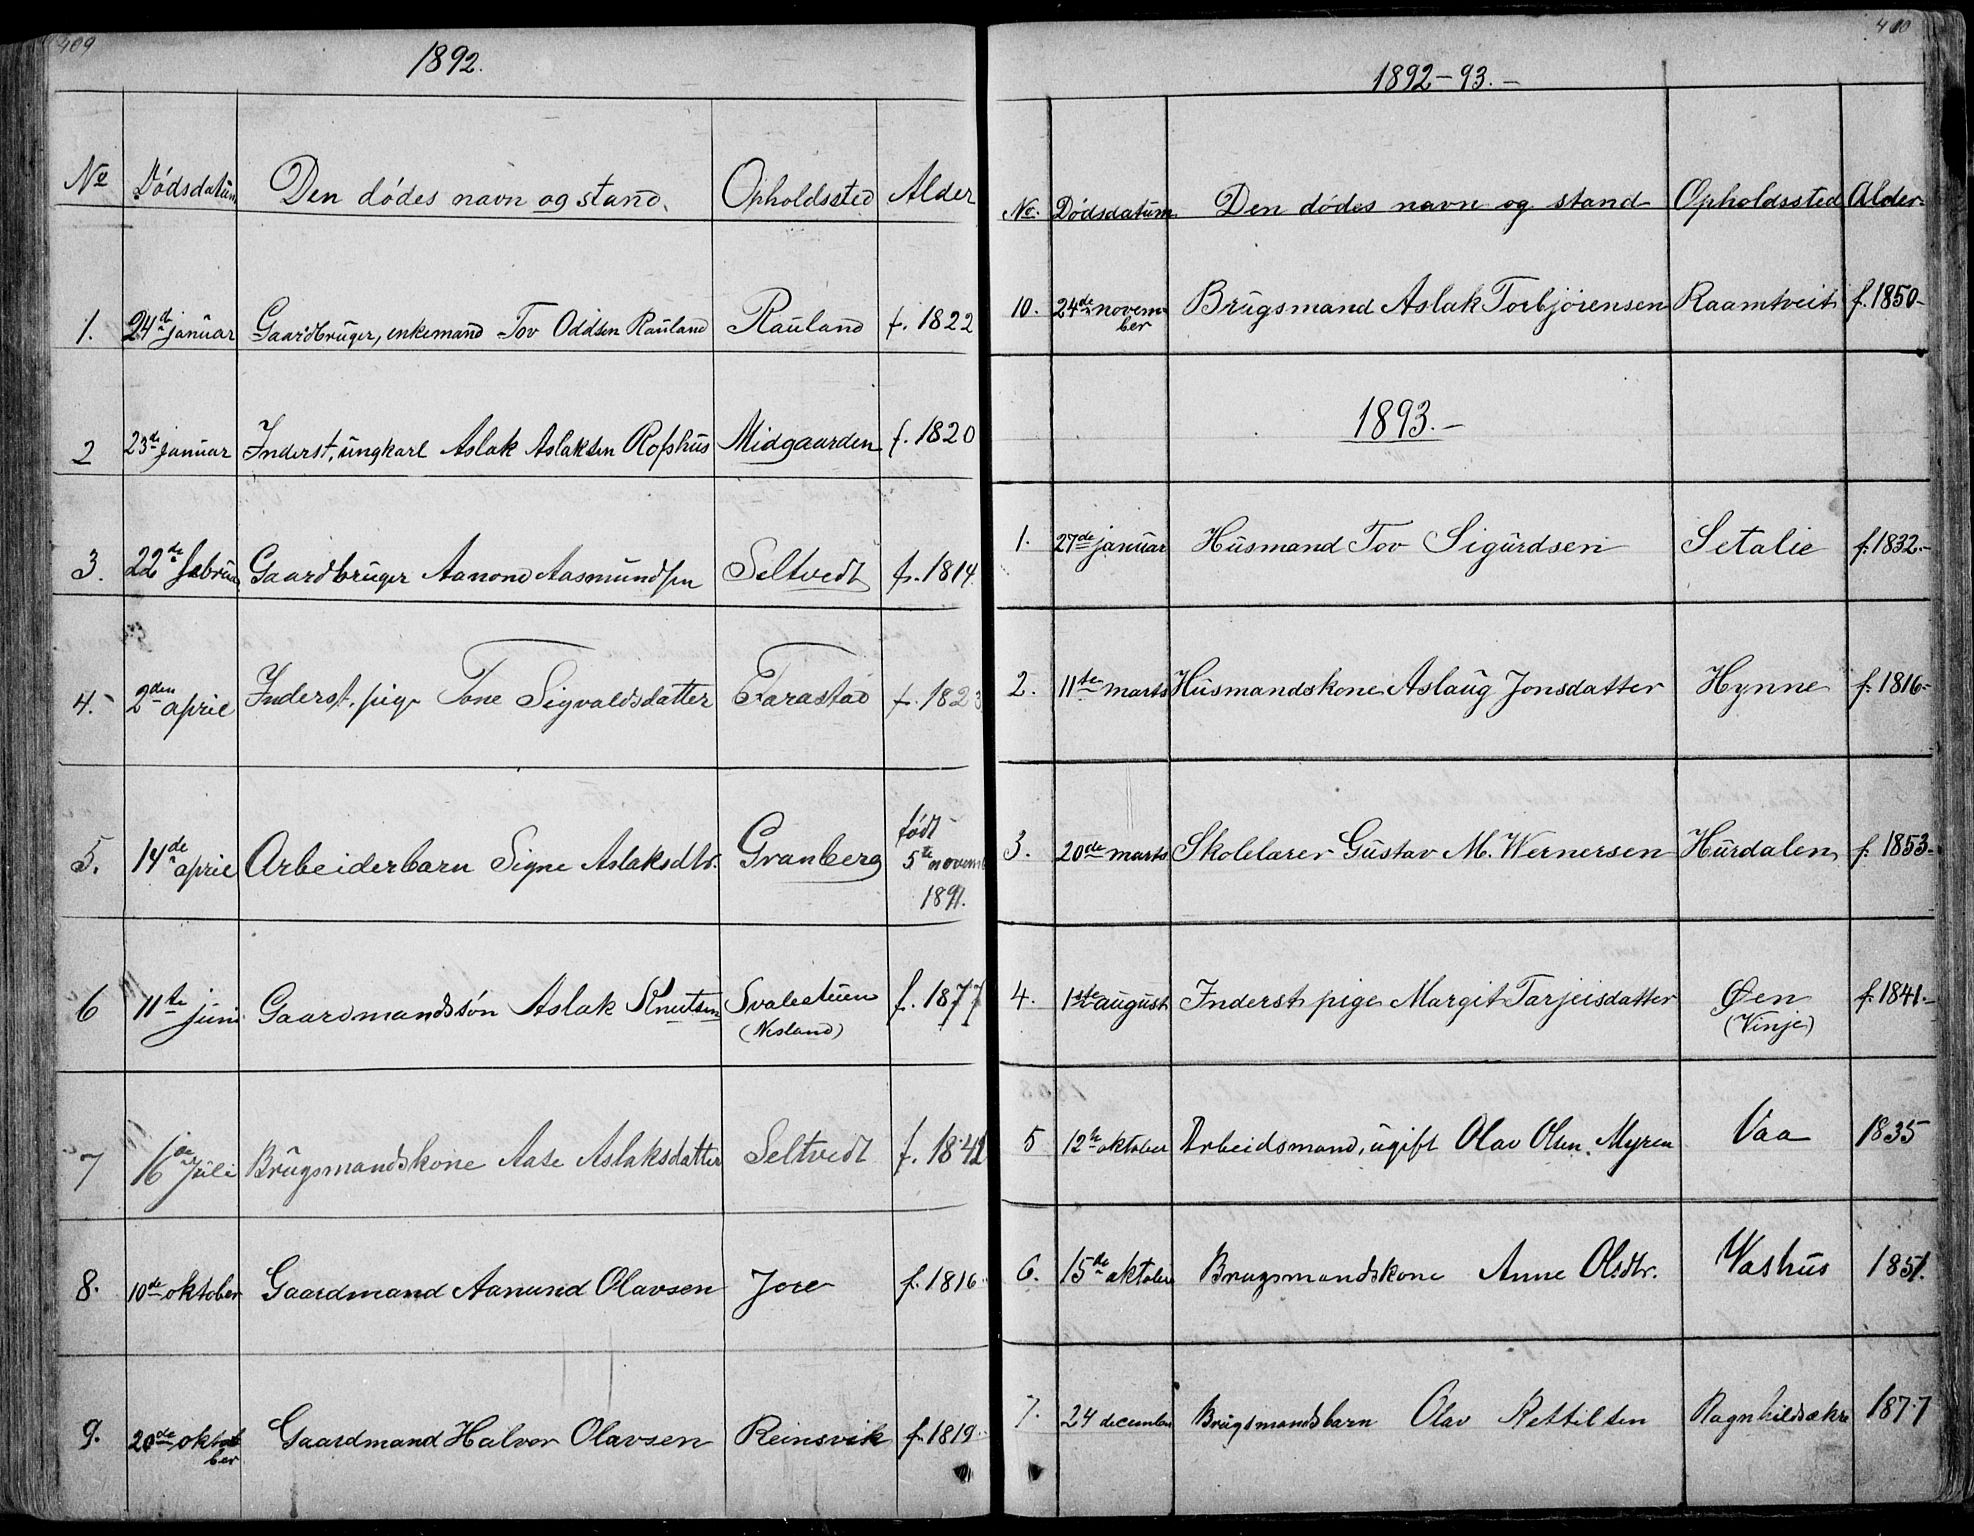 409
1892.
No Dödsdatum Den dödes navn og stand. Opholdssted Alder
1. 24de januar Gaardbruger, enkemand Tov Oddsen Rauland Rauland f. 1822
2 23de januar Inderst, ungkarl Aslak Aslaksen Rofshus Midgaarden f. 1820
3. 22de februar Gaardbruger Aanond Aasmundsen Seltvedt f. 1814.
4. 2den april Inderst, pige Tone Sigvaldsdatter Farastad f. 1823
5. 14de april Arbeiderbarn Signe Aslaksdtr. Granberg født 5te novemb 1891.
6 11te juni Gaardmandssön Aslak Knutsen Svalestuen (Nesland) f. 1877
7 16de juli Brugsmandskone Aase Aslaksdatter Seltvedt f. 1842
8. 10de oktober Gaardmand Aanund Olavsen Jore f. 1816.
9. 20de oktober Gaardmand Halvor Olavsen Reinsvik f. 1819.
410
1892-93.-
No. Dödsdatum Den dödes navn og stand Opholdssted Alder.
10. 24de november Brugsmand Aslak Torbjörensen Raamtveit f. 1850-
1893.-
1. 27de januar Husmand Tov Sigurdsen Setalie f. 1832.-
2. 11te marts Husmandskone Aslaug Jonsdatter Hynne f. 1816-
3. 20de marts Skolelærer Gustav M. Wernersen Hurdalen f. 1853-
4. 1ste august Inderst pige Margit Tarjeisdatter Øen (Vinje) f. 1841.-
5 12te oktober Arbeidsmand, ugift Olav Olsen Myren Vaa 1835
6. 15de oktober Brugsmandskone Anne Olsdtr. Vashus 1851.
7. 24 december Brugsmandsbarn Olav Kettilsen Ragnhildsakre 1877